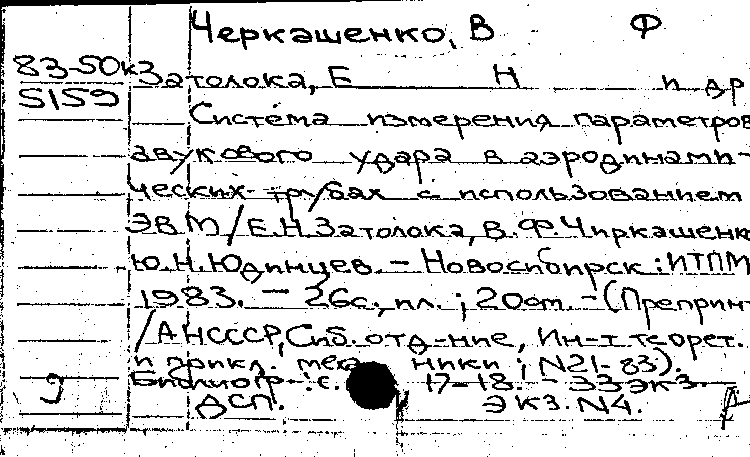 Черкашенко, В Ф
83-50к Затолока, Е Н и др
5159
Система измерения параметров
звукового удара в аэродинами-
ческих трубах с использованием
ЭВМ/Е.Н.Затолока, В.Ф.Чиркашенк
Ю.Н.Юдинцев. - Новосибирск: ИТПМ
1983. - 26с., ил.; 20см. - (Препринт
/АН СССР, Сиб. отд-ние, Ин-т теорет.
и прикл. меха ники; N21-83).
Библиогр.: с. 17-18. - 33 экз.
9 ДСП. экз. N4.